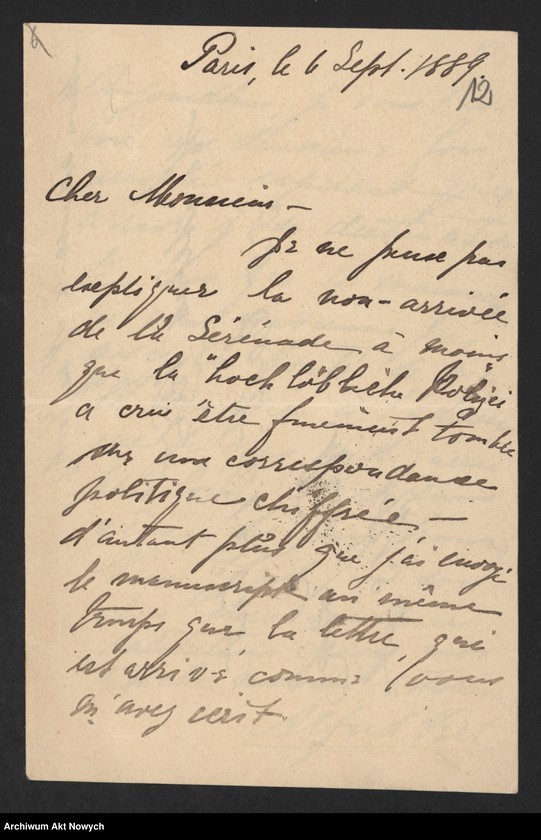 6
Paris, le 6 Sept. 1889.
12
Cher Monsieur —
Je ne peux pas
expliquer la non-arrivée
de la Sérénade à moins
que la "hochlöbliche Polizei"
a cru être finement tombée
sur une correspondance
politique chiffrée, —
d'autant plus que j'ai envoyé
le manuscript au même
temps que la lettre, qui
est arrivé comme vous
m'avez écrit.
Archiwum Akt Nowych